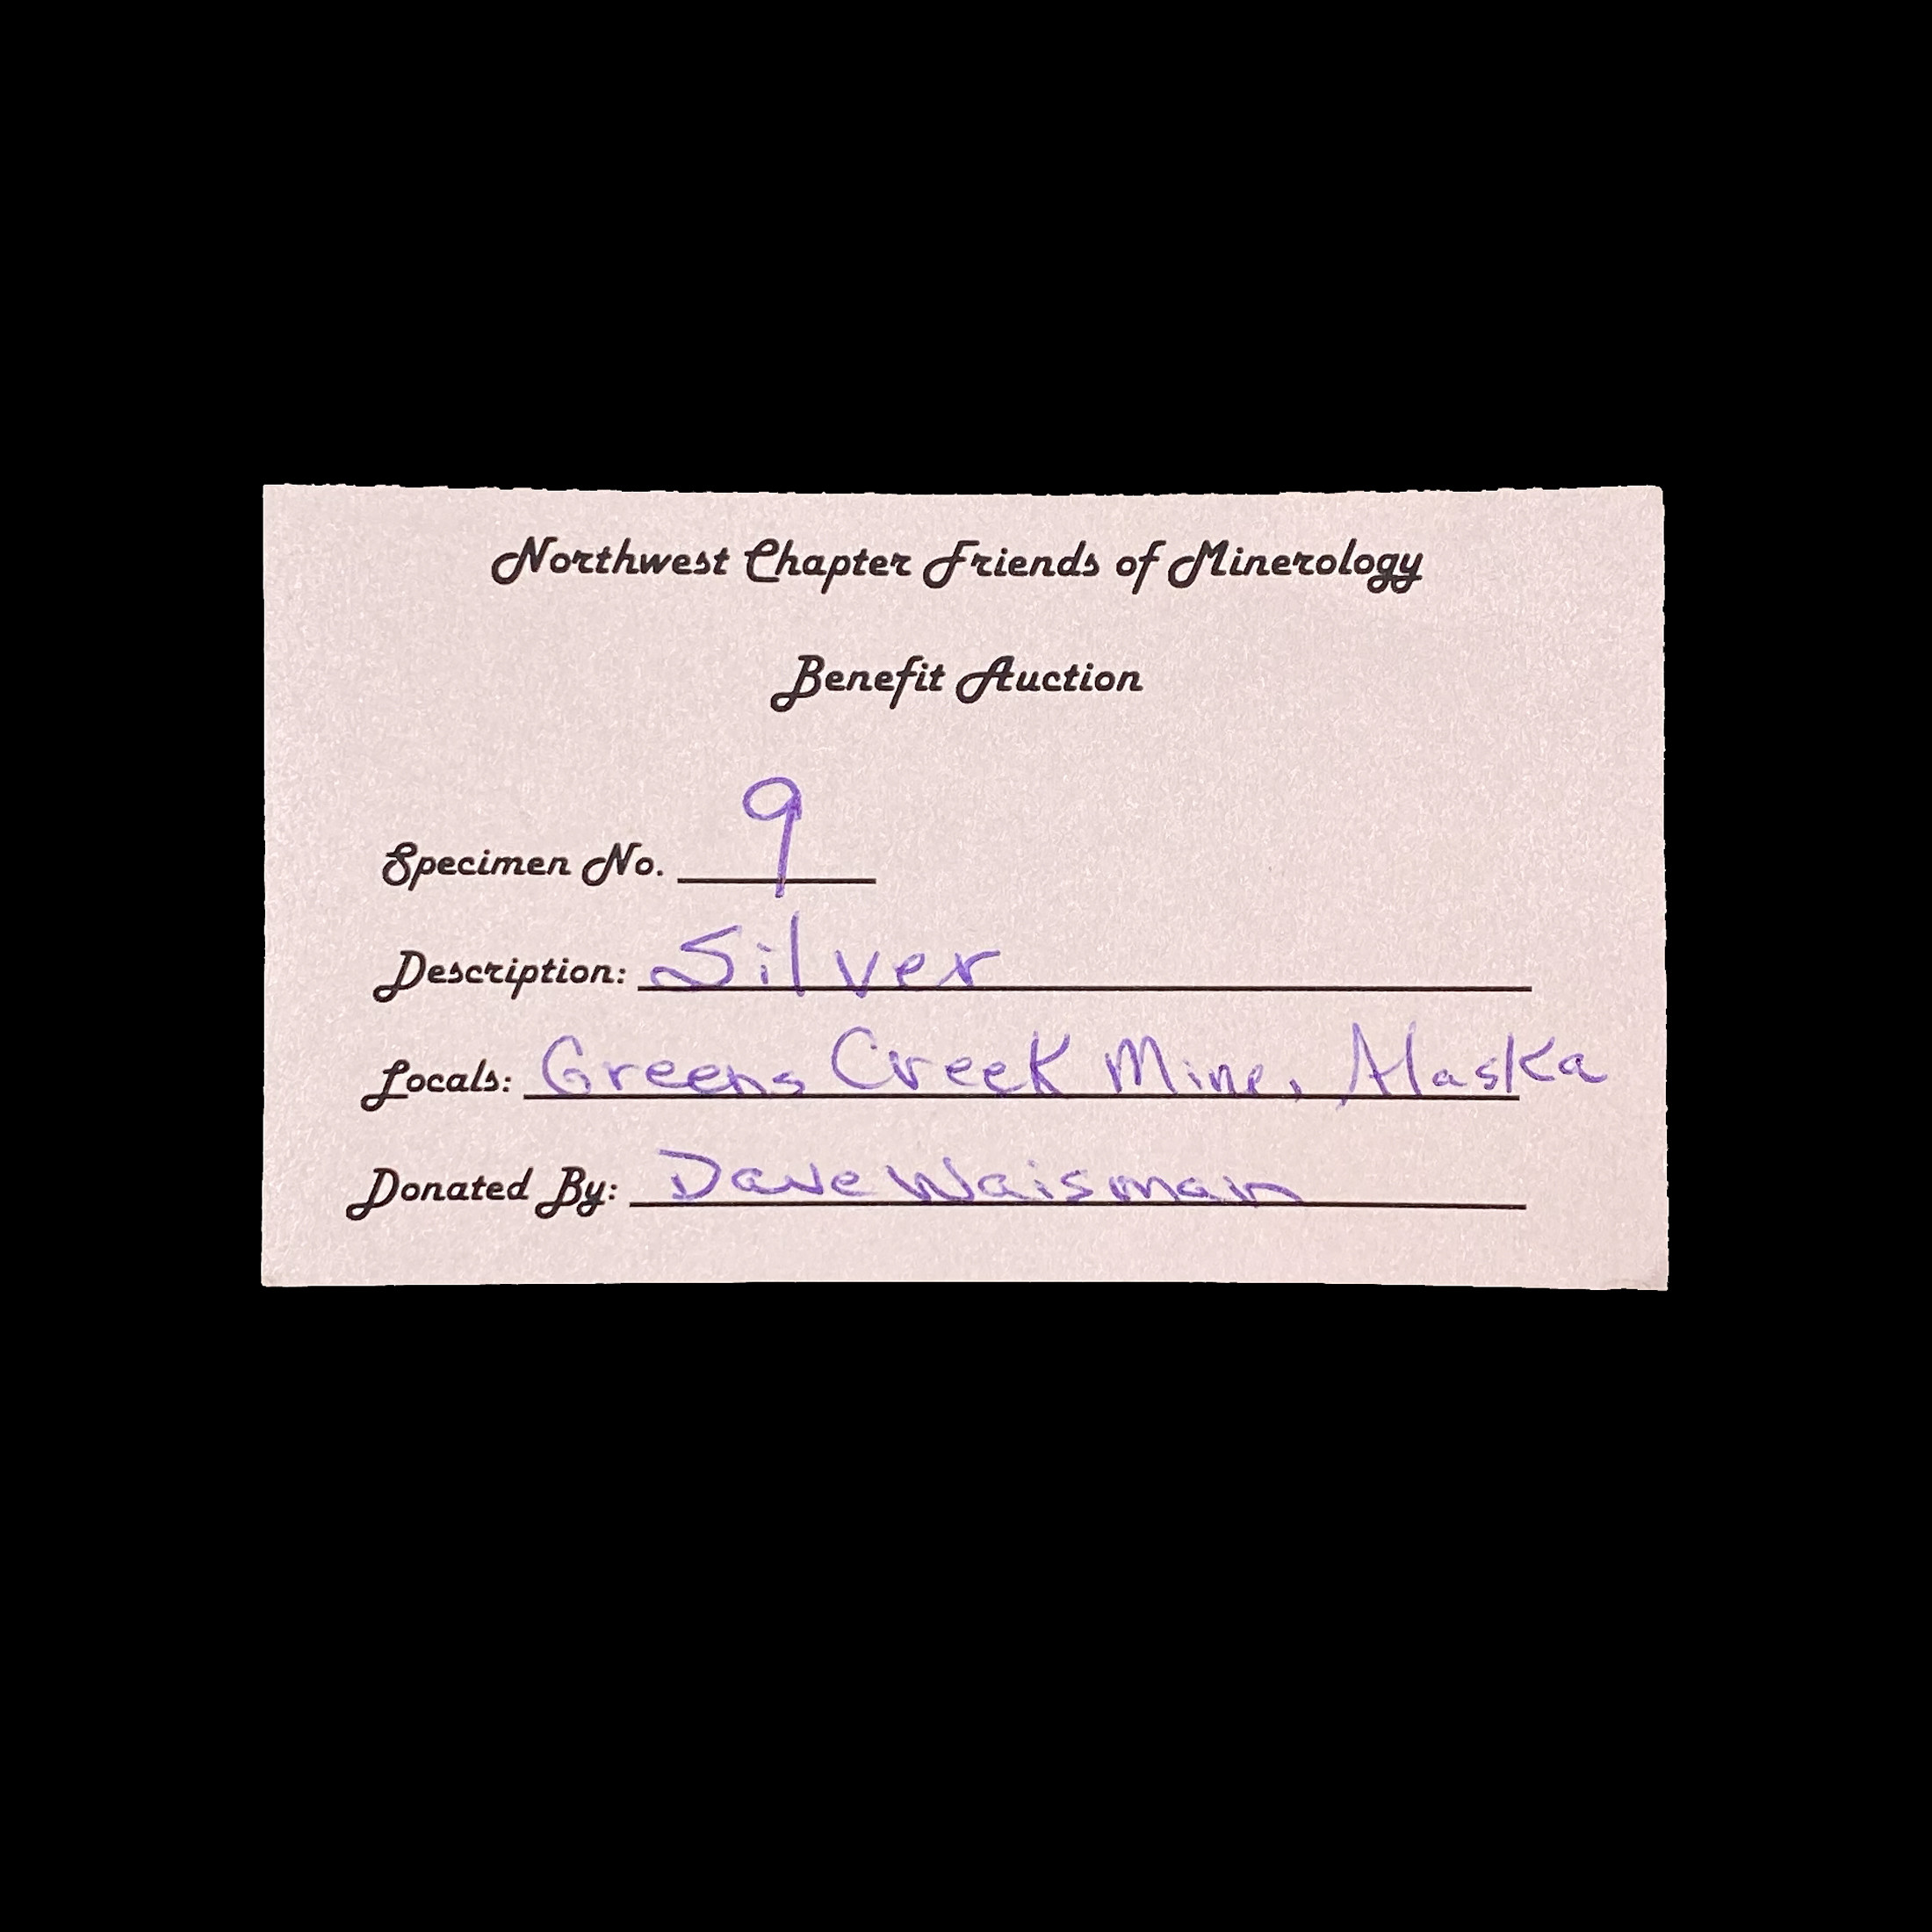 Northwest Chapter Friends of Minerology
Benefit Auction
Specimen No. 9
Description: Silver
Locals: Greens Creek Mine, Alaska
Donated By: Dave Waisman